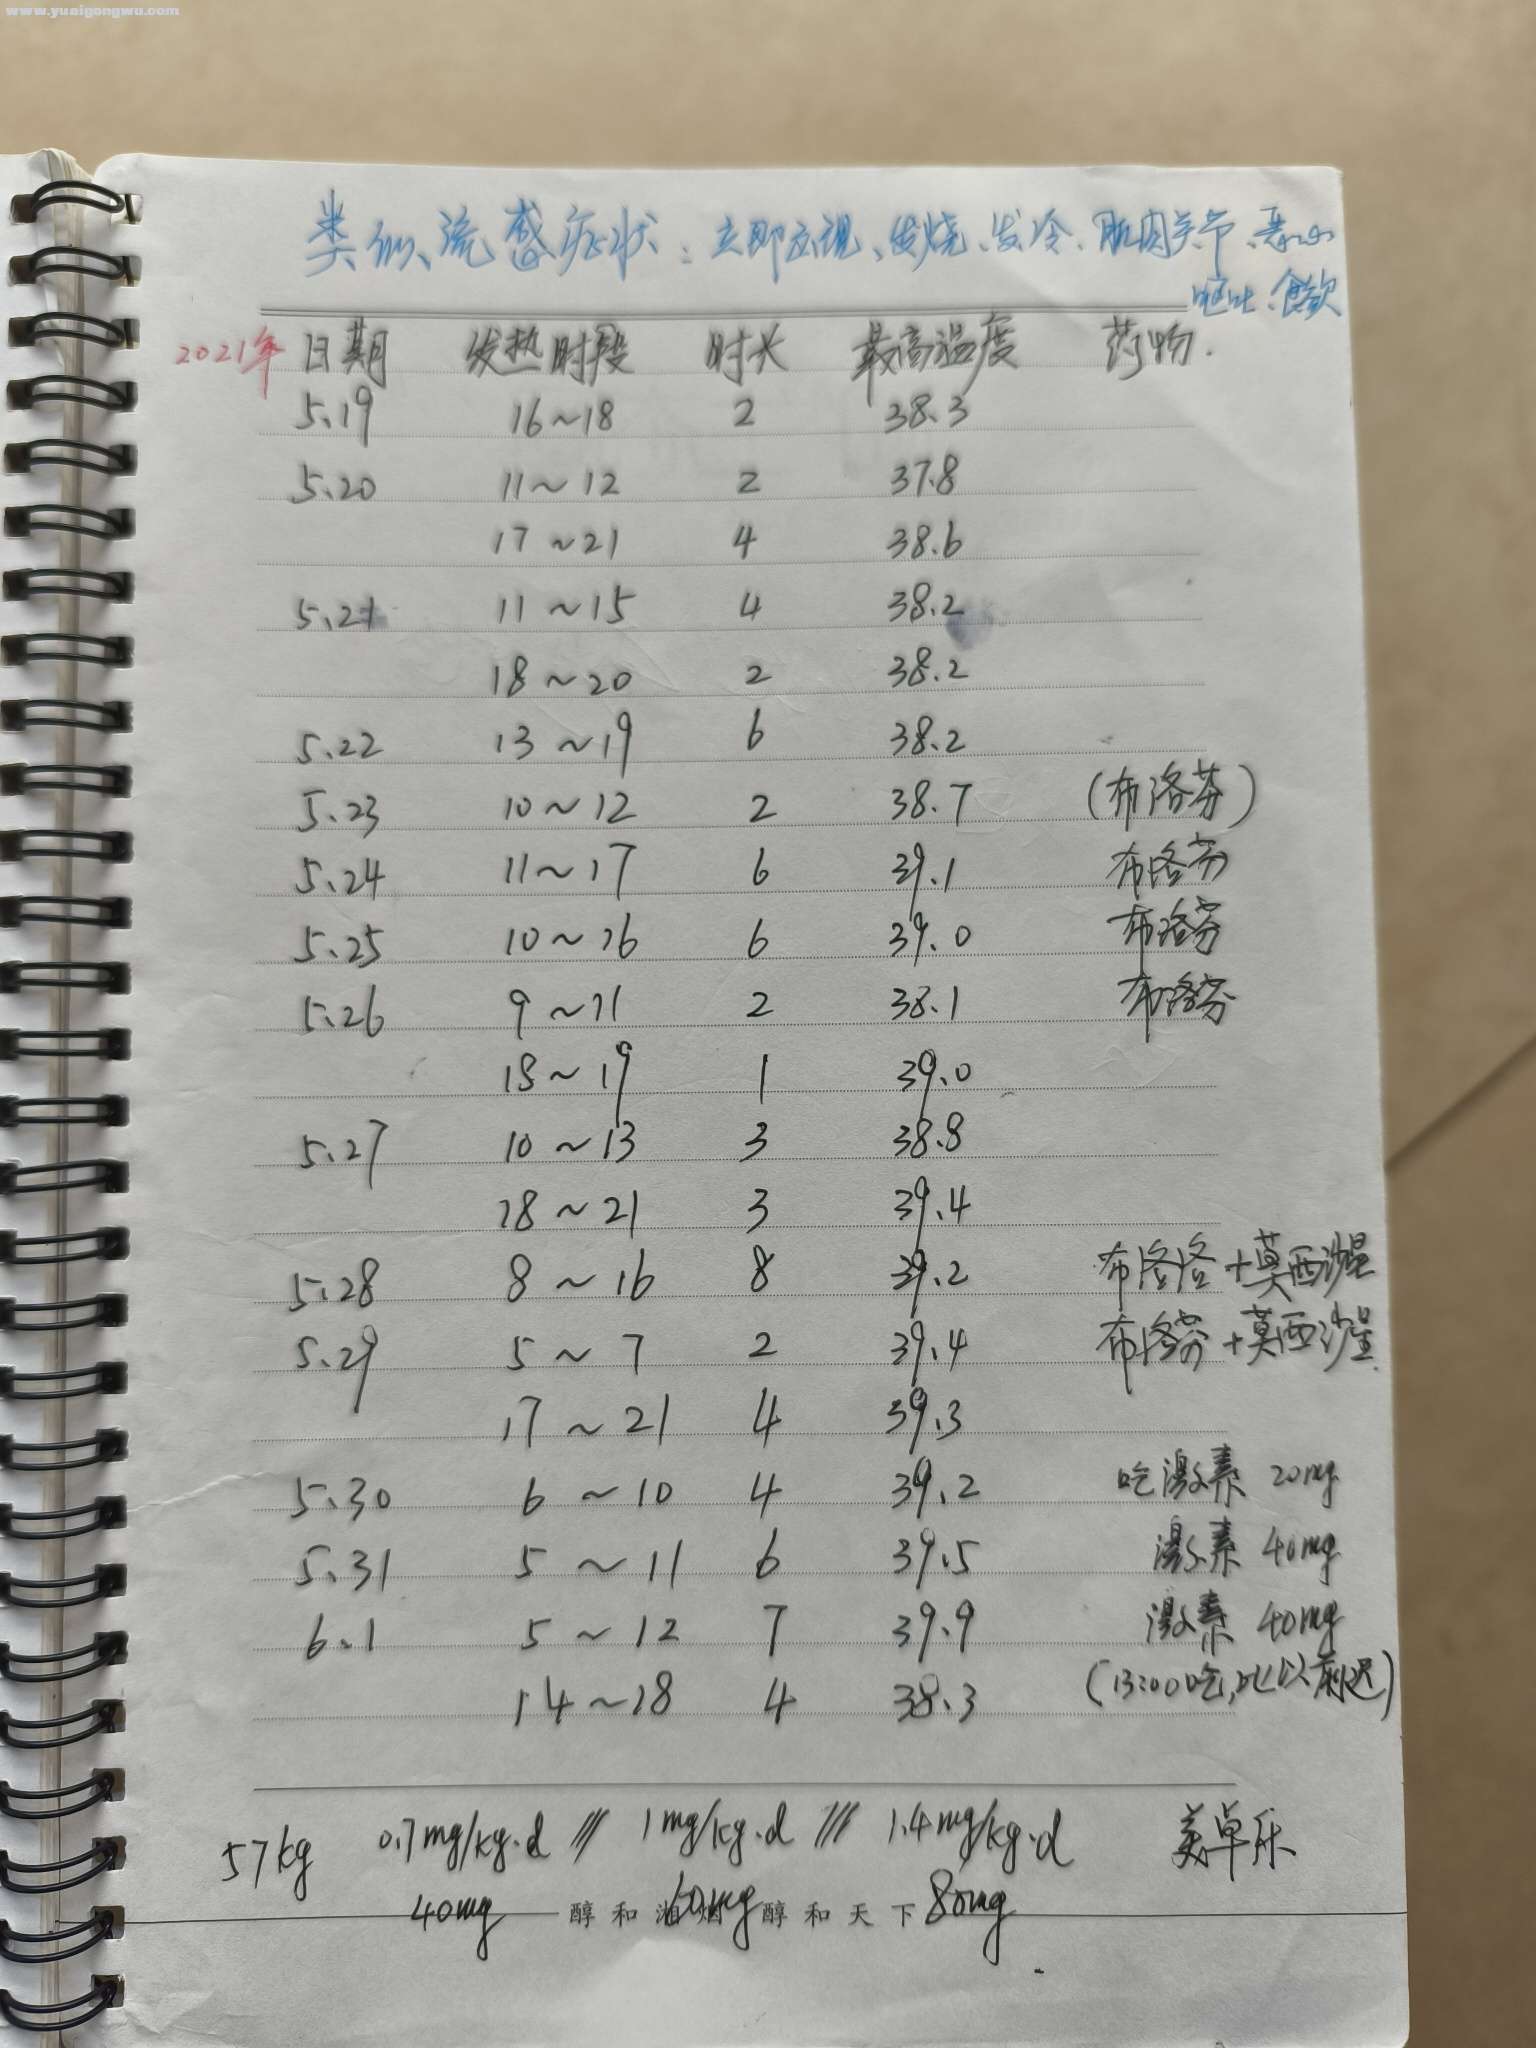 www.yuaigongwu.com
类似流感症状：立即应视、发烧、发冷、肌肉关节、恶心
呕吐、食欲
2021年 日期 发热时段 时长 最高温度 药物.
5.19 16~18 2 38.3
5.20 11~12 2 37.8
17~21 4 38.6
5.21 11~15 4 38.2
18~20 2 38.2
5.22 13~19 6 38.2
5.23 10~12 2 38.7 (布洛芬)
5.24 11~17 6 39.1 布洛芬
5.25 10~16 6 39.0 布洛芬
5.26 9~11 2 38.1 布洛芬
18~19 1 39.0
5.27 10~13 3 38.8
18~21 3 39.4
5.28 8~16 8 39.2 布洛洛+莫西沙星
5.29 5~7 2 39.4 布洛芬+莫西沙星
17~21 4 39.3
5.30 6~10 4 39.2 吃激素 20mg
5.31 5~11 6 39.5 激素 40mg
6.1 5~12 7 39.9 激素 40mg
14~18 4 38.3 (13:00吃,比以前迟)
57kg 0.7mg/kg.d /// 1mg/kg.d /// 1.4mg/kg.d 美卓乐
40mg 60mg 80mg
醇和湘烟 醇和天下